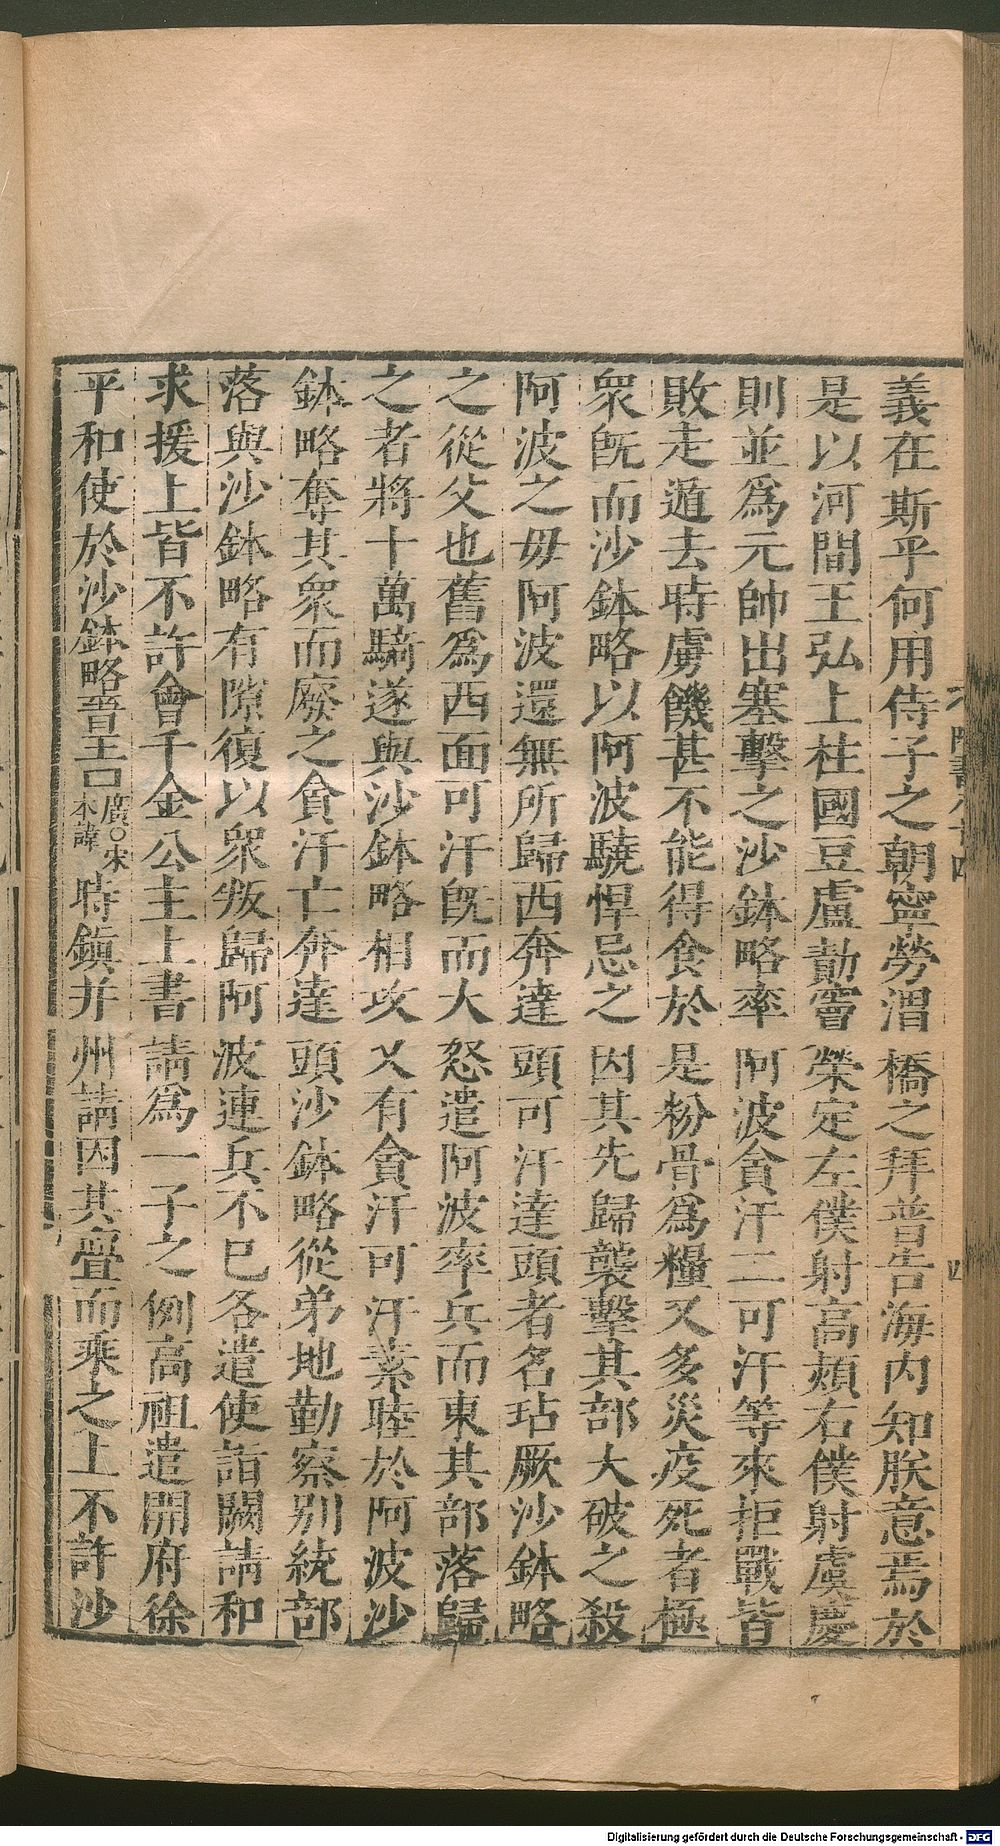 義在斯乎何用侍子之朝寧勞渭橋之拜普告海内知朕意焉於
是以河間王弘上柱國豆盧勣竇榮定左僕射高熲右僕射虞慶
則並爲元帥出塞擊之沙鉢略率阿波貪汗二可汗等來拒戰皆
敗走遁去時虜饑甚不能得食於是粉骨爲糧又多災疫死者極
衆旣而沙鉢略以阿波驍悍忌之因其先歸襲擊其部大破之殺
阿波之毋阿波還無所歸西奔達頭可汗達頭者名玷厥沙鉢略
之從父也舊爲西面可汗旣而大怒遣阿波率兵而東其部落歸
之者將十萬騎遂與沙鉢略相攻又有貪汗可汗素睦於阿波沙
鉢略奪其衆而廢之貪汗亡奔達頭沙鉢略從弟地勤察别統部
落與沙鉢略有隙復以衆叛歸阿波連兵不已各遣使詣闕請和
求援上皆不許會千金公主上書請爲一子之例高祖遣開府徐
平和使於沙鉢略晉王廣○宋本諱時鎮并州請因其釁而乘之上不許沙
四
Digitalisierung gefördert durch die Deutsche Forschungsgemeinschaft - DFG